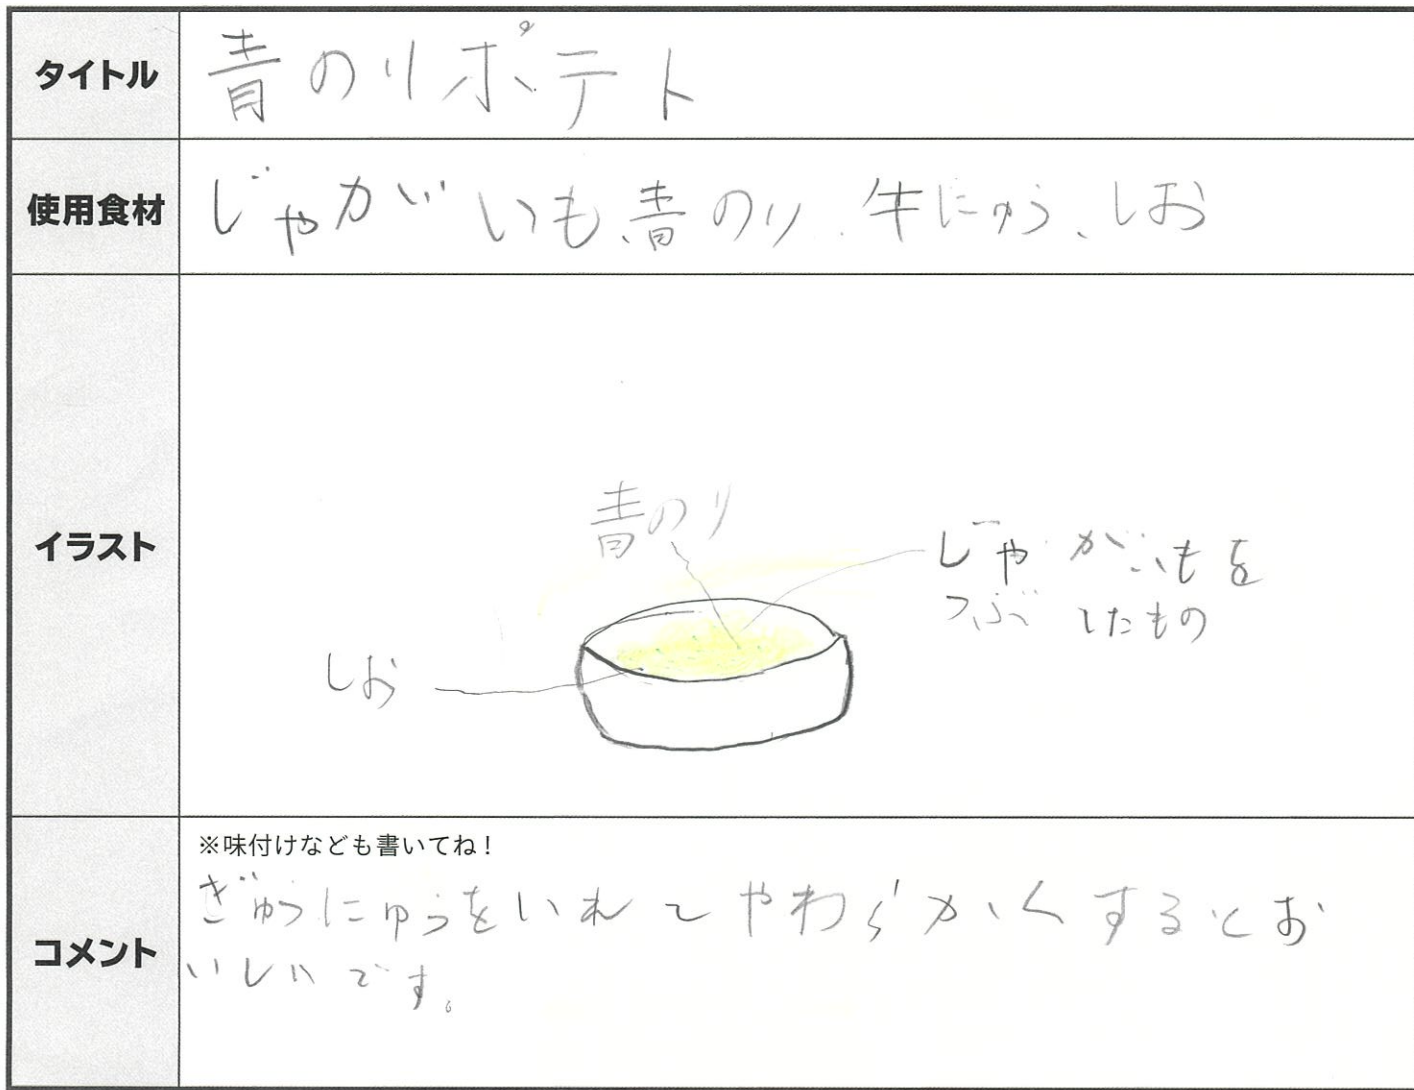 タイトル
青のりポテト
使用食材
じゃがいも、青のり、牛にゅう、しお
イラスト
青のり
じゃがいもを
つぶしたもの
しお
コメント
※味付けなども書いてね!
ぎゅうにゅうをいれてやわらかくするとお
いしいです。